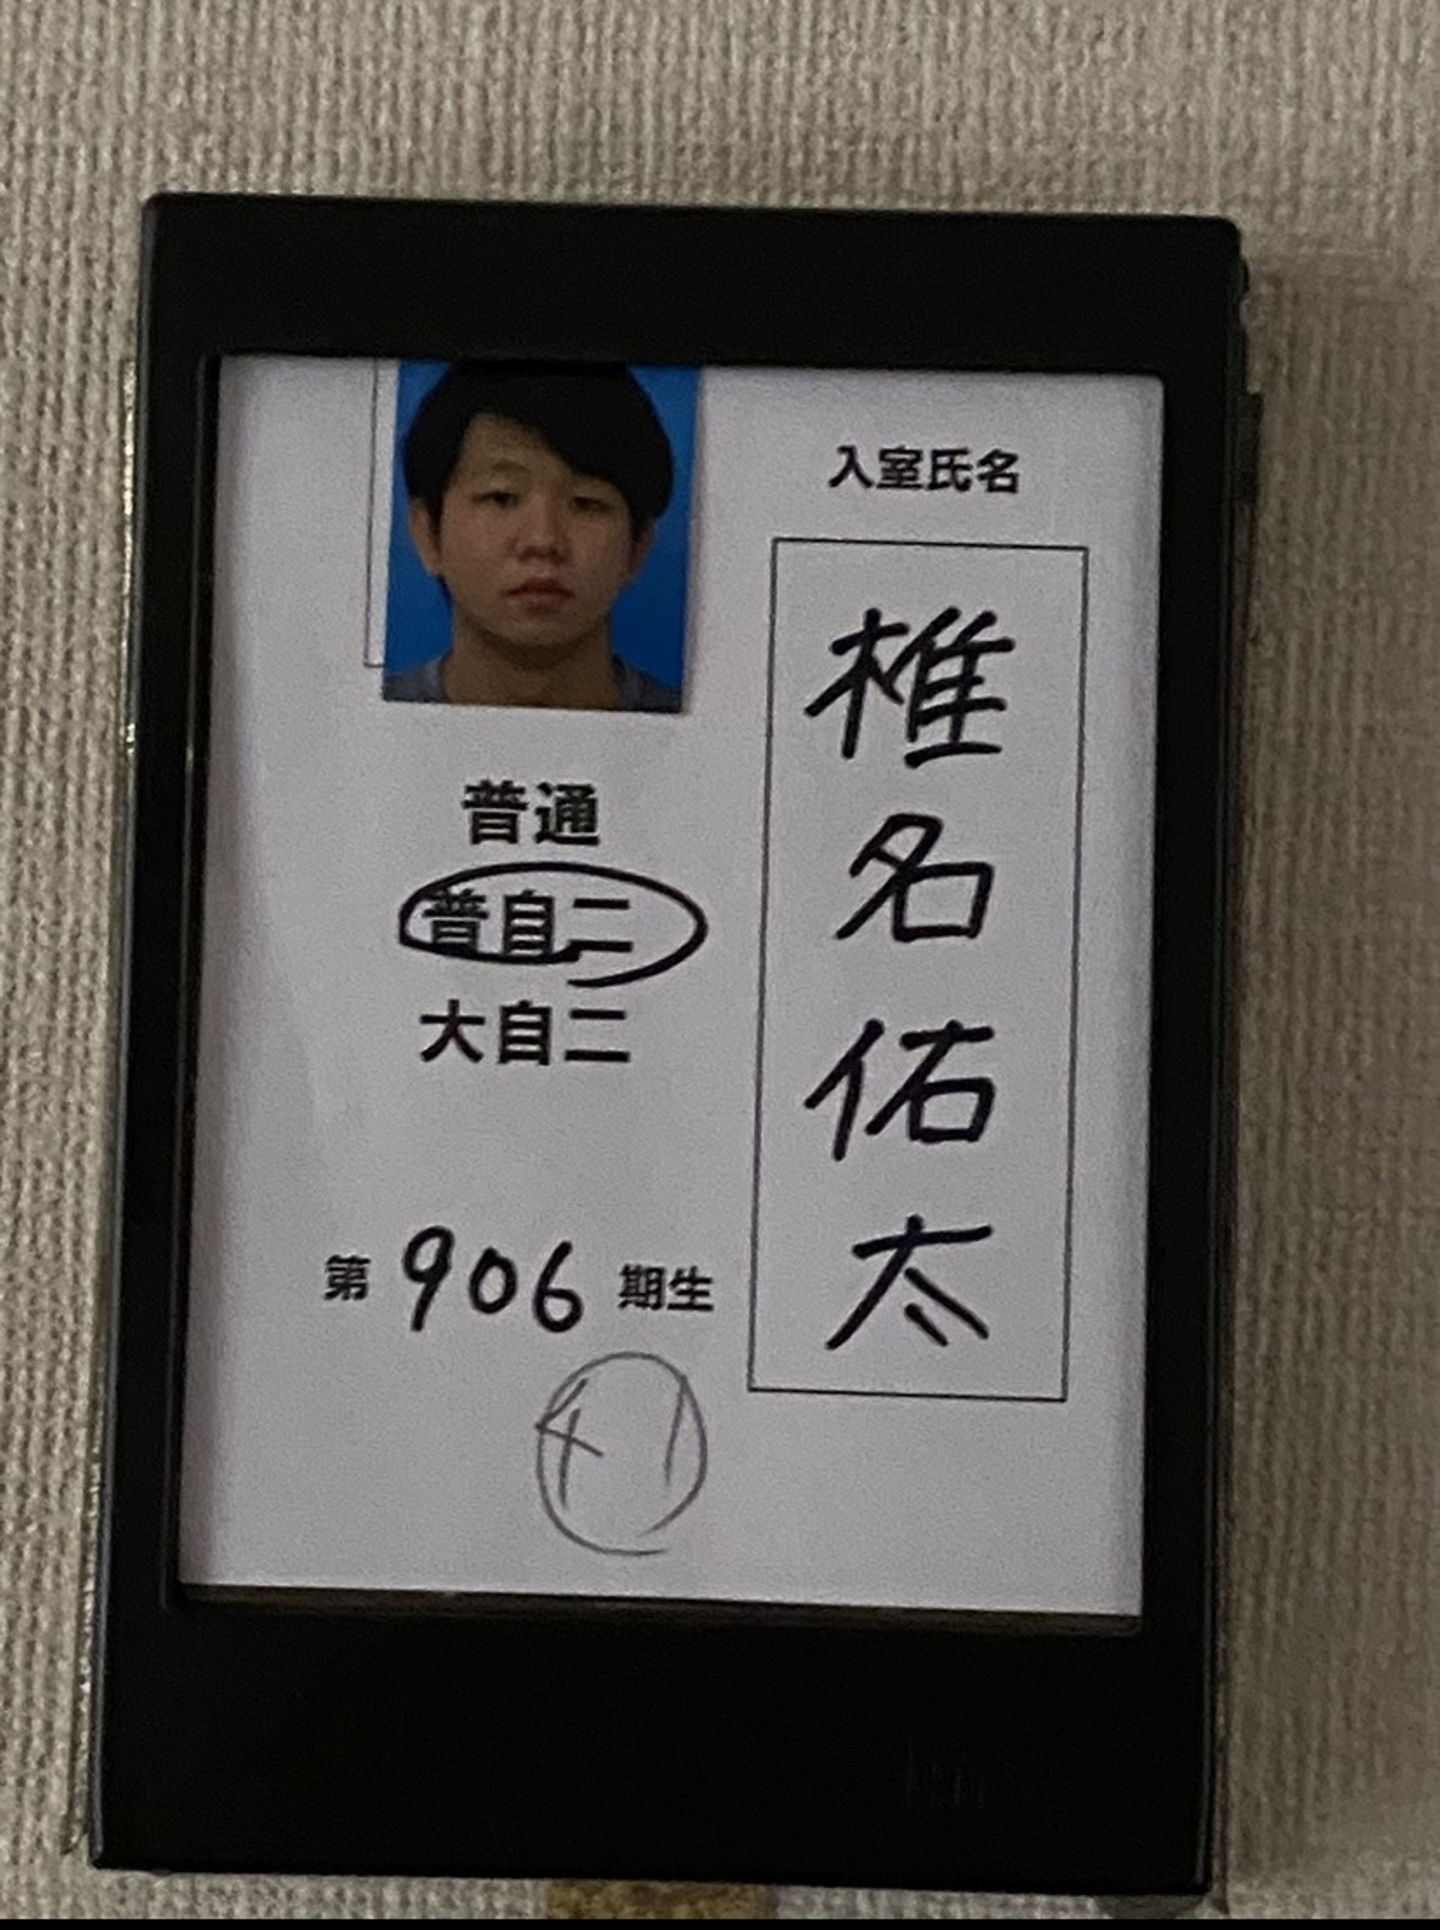 入室氏名
椎名佑太
普通
普自二
大自二
第906期生
41